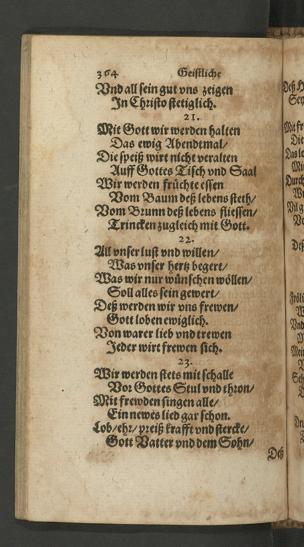 364 Geistliche
Vnd all sein gut vns zeigen
In Christo stetiglich.
21.
Mit Gott wir werden halten
Das ewig Abendtmal/
Die speiß wirt nicht veralten
Auff Gottes Tisch vnd Saal
Wir werden früchte essen
Vom Baum deß lebens steth/
Vom Brunn deß lebens fliessen/
Trincken zugleich mit Gott.
22.
All vnser lust vnd willen/
Was vnser hertz begert/
Was wir nur wünschen wöllen/
Soll alles sein gewert/
Deß werden wir vns frewen/
Gott loben ewiglich.
Von warer lieb vnd trewen
Jeder wirt frewen sich.
23.
Wir werden stets mit schalle
Vor Gottes Stul vnd thron/
Mit frewden singen alle/
Ein newes lied gar schon.
Lob/ehr/preiß krafft vnd stercke/
Gott Vatter vnd dem Sohn/
Deß